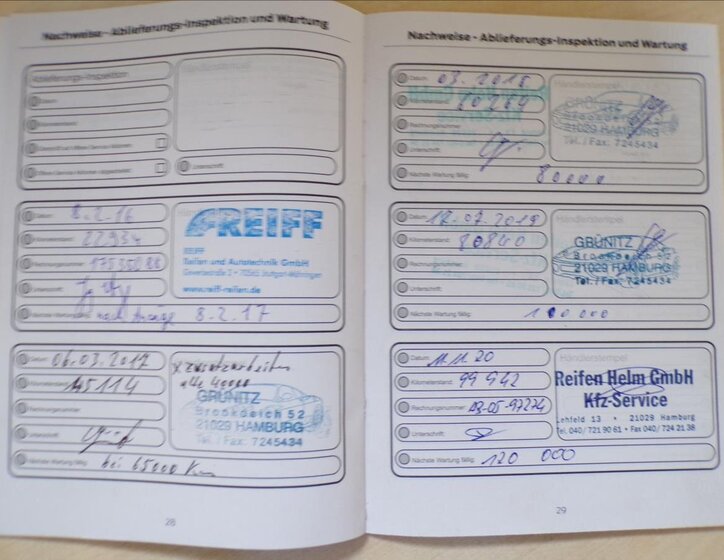 Nachweise - Ablieferungs-Inspektion und Wartung
Ablieferungs-Inspektion
Datum:
Kilometerstand:
Unterschrift:
Datum: 8.2.16
Kilometerstand: 22934
Rechnungsnummer:
Unterschrift:
Nächste Wartung fällig: nach Anzeige 8.2.17
REIFF
REIFF
Reifen und Autotechnik GmbH
www.reiff-reifen.de
Datum: 06.03.2017
Kilometerstand: 45114
Rechnungsnummer:
Unterschrift:
Nächste Wartung fällig: bei 65000 Km
x Zusatzarbeiten
alle 40000
GRÜNITZ
Brookdeich 52
21029 HAMBURG
Tel. / Fax: 7245434
28
Nachweise - Ablieferungs-Inspektion und Wartung
Datum: 03.2018
Kilometerstand: 60264
Rechnungsnummer:
Unterschrift:
Nächste Wartung fällig: 80000
Händlerstempel
GRÜNITZ
21029 HAMBURG
Tel. / Fax: 7245434
Datum: 12.07.2019
Kilometerstand: 80840
Rechnungsnummer:
Unterschrift:
Nächste Wartung fällig: 100000
Händlerstempel
GRÜNITZ
Brookdeich 52
21029 HAMBURG
Tel. / Fax: 7245434
Datum: 11.11.20
Kilometerstand: 99942
Rechnungsnummer: 03-05-97274
Unterschrift:
Nächste Wartung fällig: 120 000
Händlerstempel
Reifen Helm GmbH
Kfz-Service
Lehfeld 13 • 21029 Hamburg
Tel. 040/ 721 90 61 • Fax 040/ 724 21 38
29